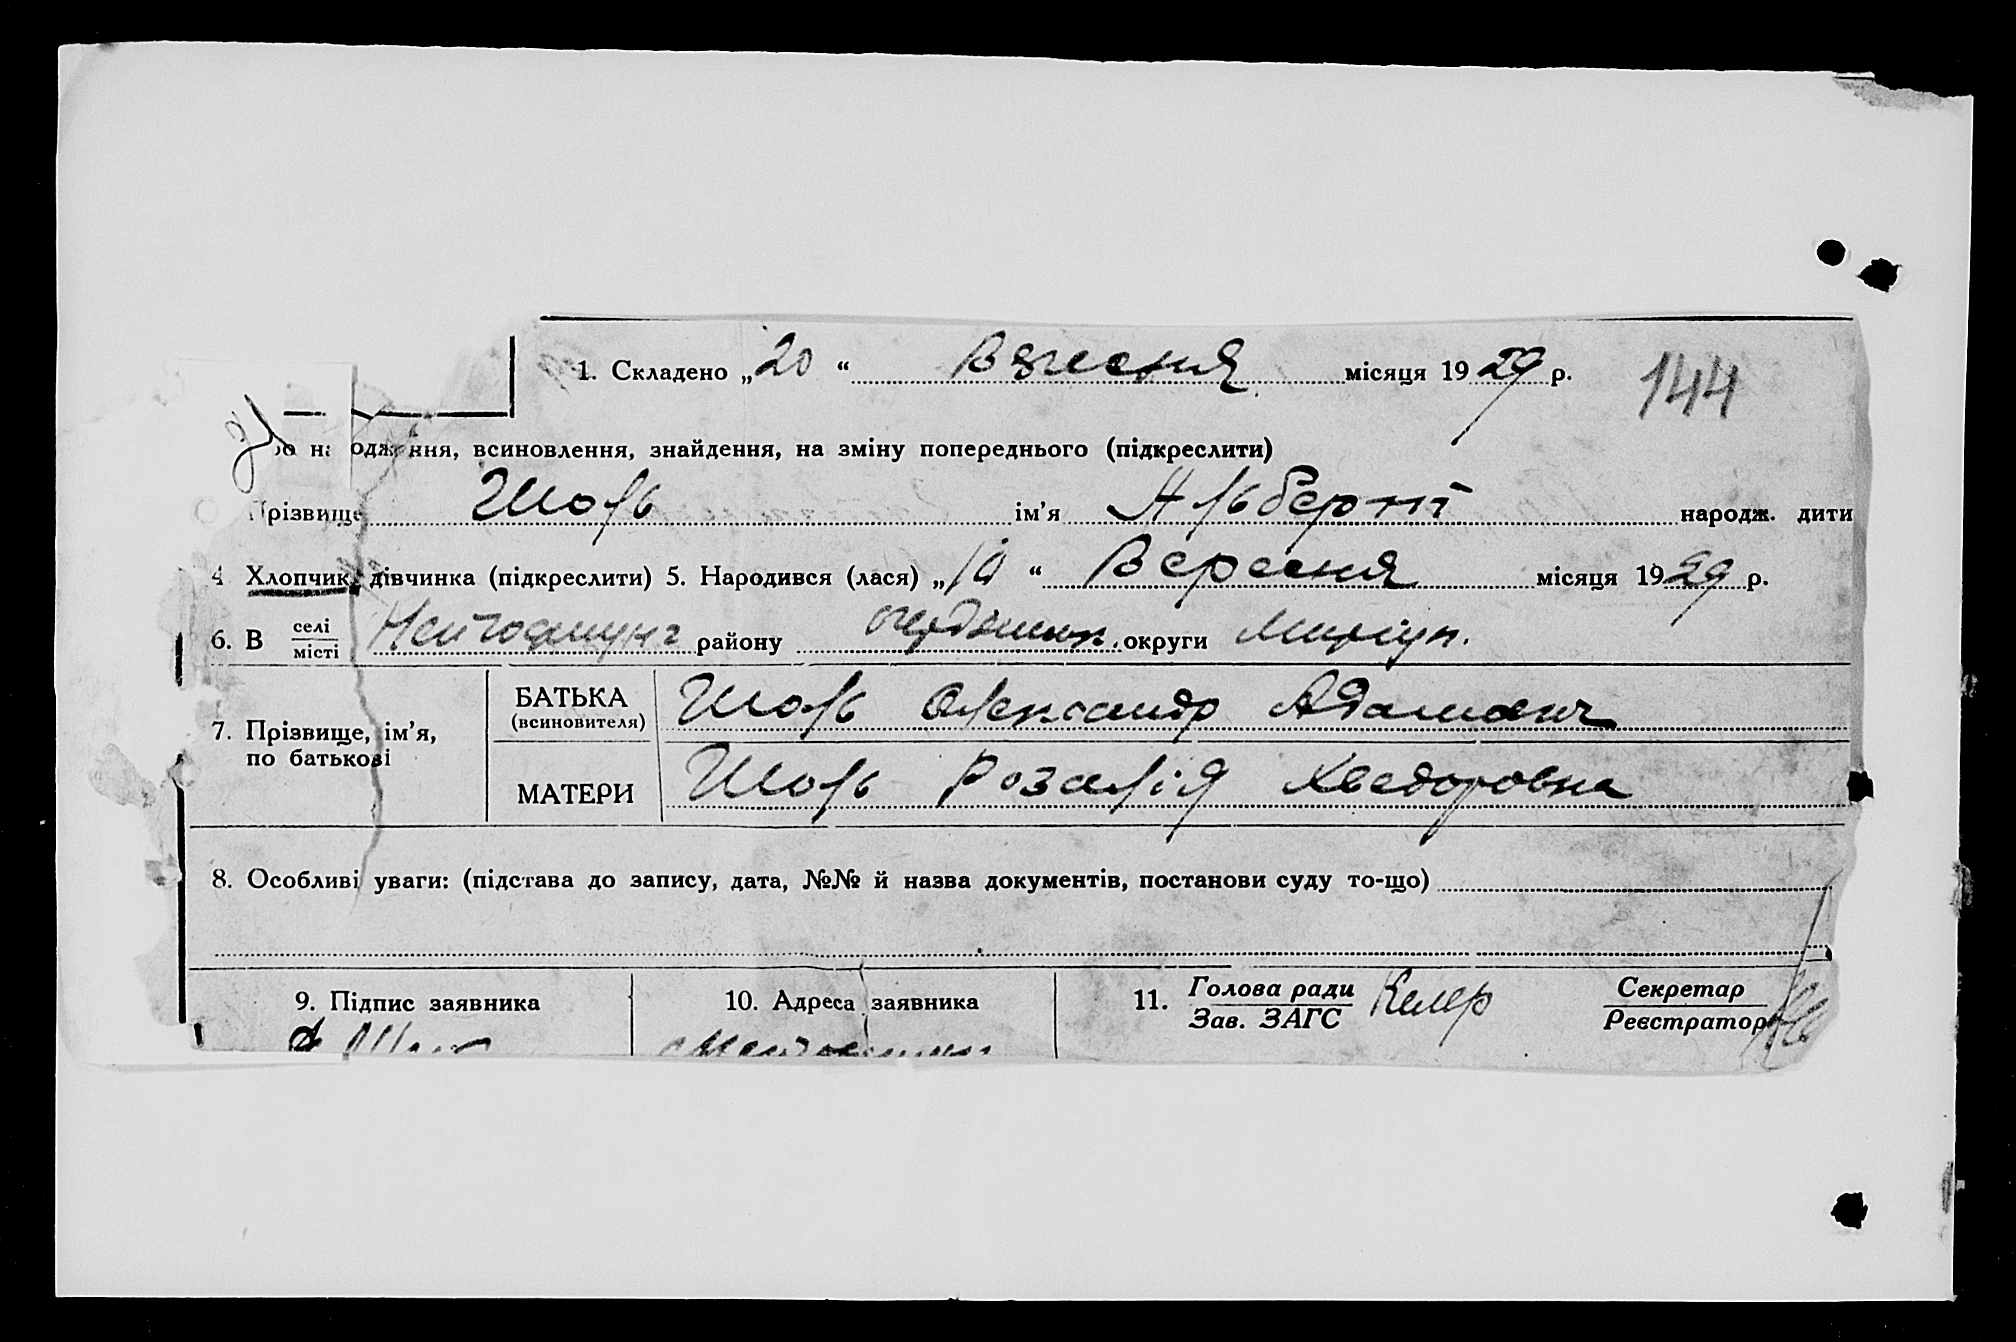 1. Складено „20 “ Вересня місяця 1929 р. 144
одження, всиновлення, знайдення, на зміну попереднього (підкреслити)
Прізвище Шоль ім’я Альберт народж. дити
4 Хлопчик, дівчинка (підкреслити) 5. Народився (лася) „10 “ Вересня місяця 1929 р.
6. В селі місті Нейгофнунг району округи Маріуп.
7. Прізвище, ім’я, по батькові
БАТЬКА (всиновителя) Шоль Олександр Адамович
МАТЕРИ Шоль Розалія Хведоровна
8. Особливі уваги: (підстава до запису, дата, №№ й назва документів, постанови суду то-що)
9. Підпис заявника
10. Адреса заявника
11. Голова ради Зав. ЗАГС Келер Секретар Реєстратор